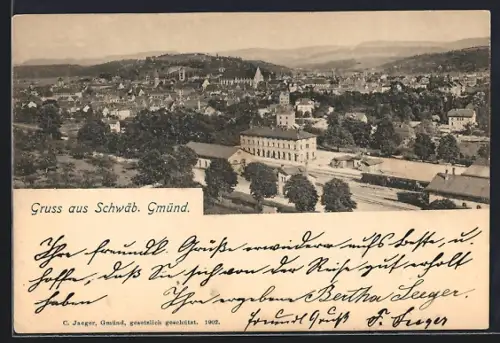 Gruss aus Schwäb. Gmünd.
Ihre freundl. Grüße erwidere aufs beste, u.
hoffe, daß Sie sich von der Reise gut erholt
haben Ihre ergebene Bertha Seeger.
freundl Gruß F. Seeger
C. Jaeger, Gmünd, gesetzlich geschützt. 1902.